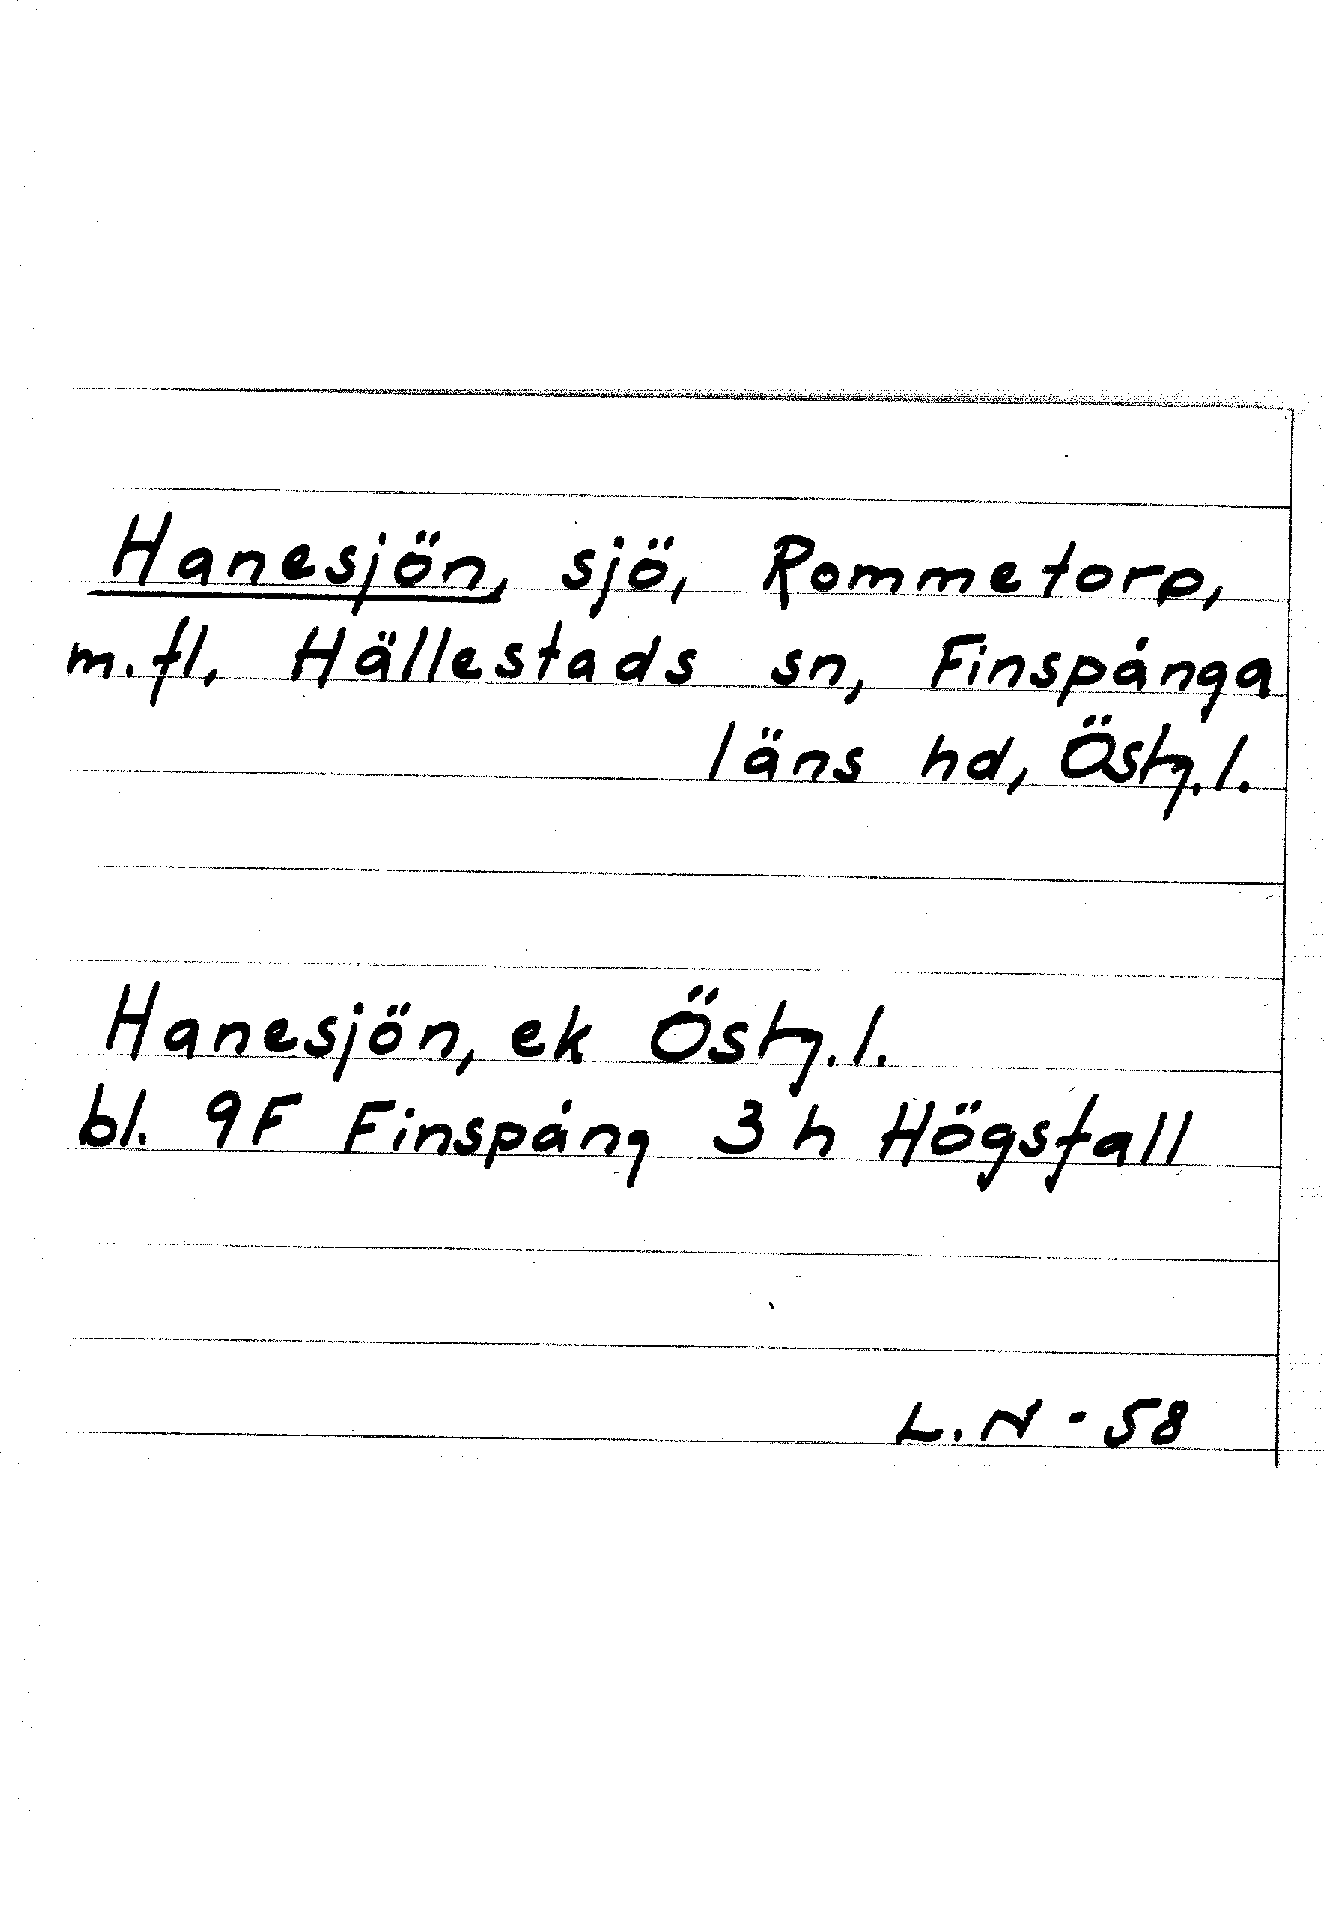 Hanesjön, sjö, Rommetorp,
m.fl, Hällestads sn, Finspånga
läns hd, Östg.l.
Hanesjön, ek Östg.l.
bl. 9F Finspång 3h Högsfall
L.N - 58